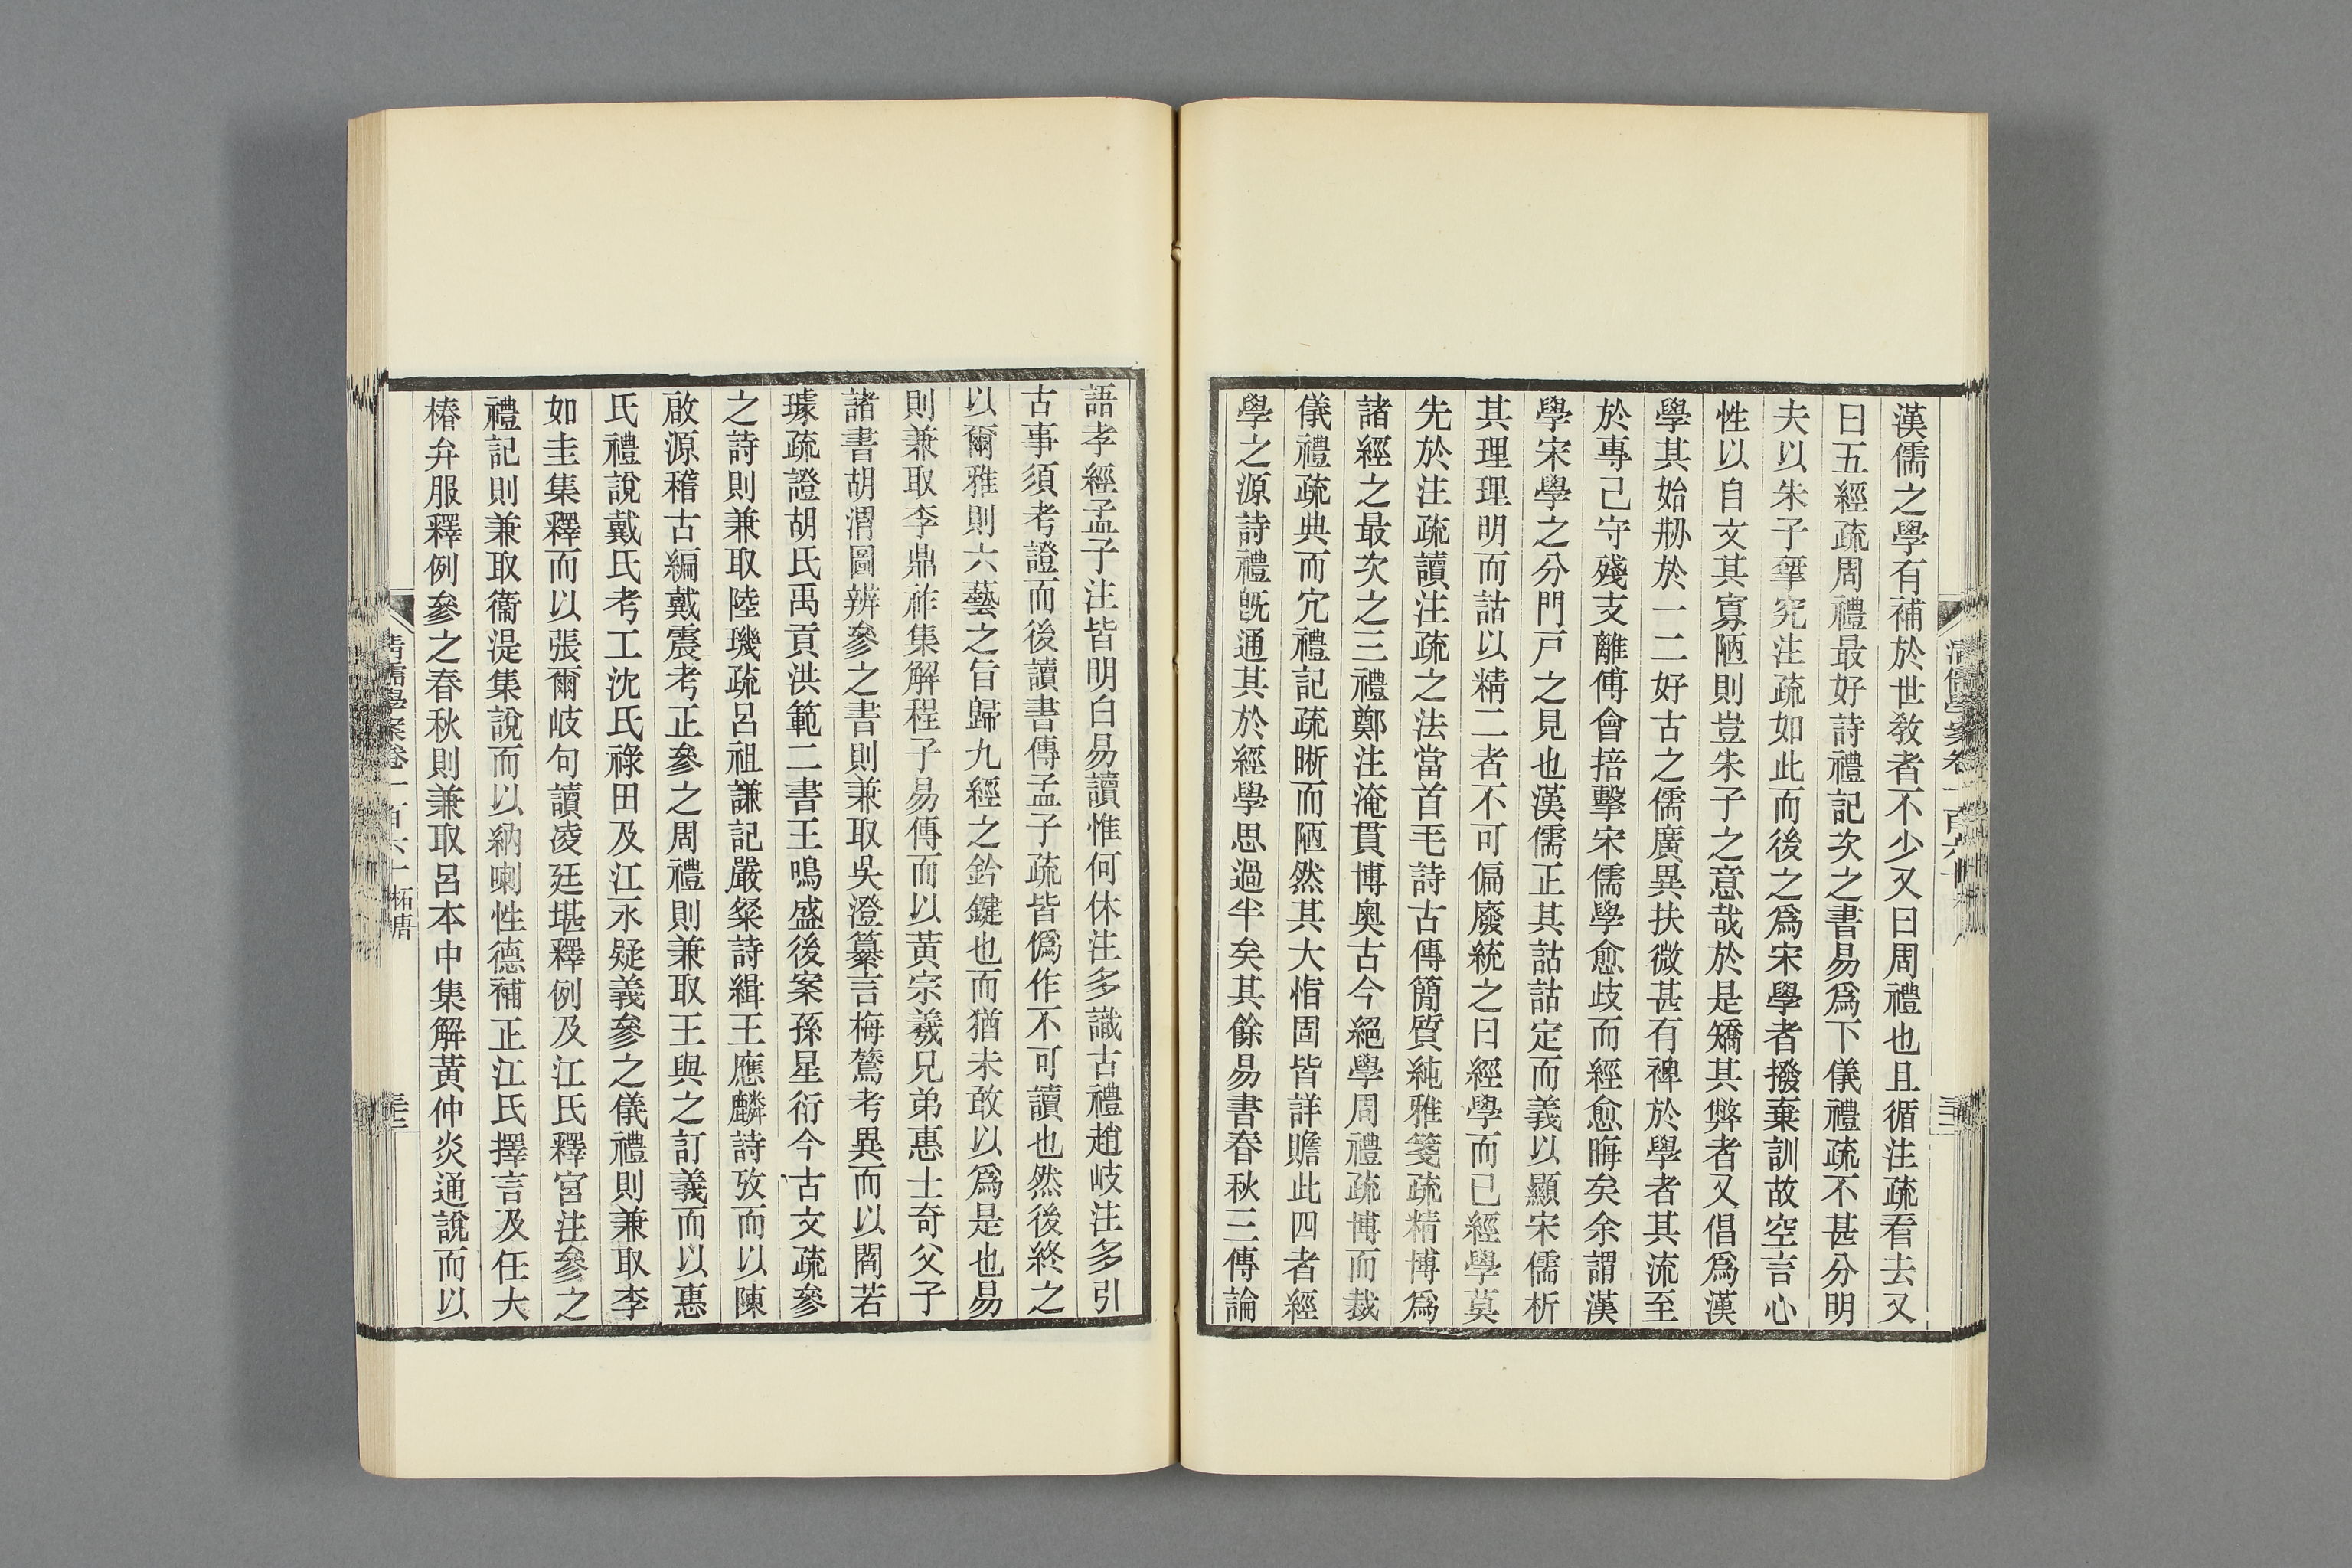 漢儒之學有補於世敎者不少又曰周禮也且循注疏看去又
曰五經疏周禮最好詩禮記次之書易爲下儀禮疏不甚分明
夫以朱子犖究注疏如此而後之爲宋學者撥棄訓故空言心
性以自文其寡陋則豈朱子之意哉於是矯其獘者又倡爲漢
學其始刱於一二好古之儒廣異扶微甚有裨於學者其流至
於專己守殘支離傅會掊擊宋儒學愈歧而經愈晦矣余謂漢
學宋學之分門戸之見也漢儒正其詁詁定而義以顯宋儒析
其理理明而詁以精二者不可偏廢統之曰經學而已經學莫
先於注疏讀注疏之法當首毛詩古傳簡質純雅箋疏精博爲
諸經之最次之三禮鄭注淹貫博奧古今絕學周禮疏博而裁
儀禮疏典而宂禮記疏晰而陋然其大恉固皆詳贍此四者經
學之源詩禮旣通其於經學思過半矣其餘易書春秋三傳論
語孝經孟子注皆明白易讀惟何休注多識古禮趙岐注多引
古事須考證而後讀書傳孟子疏皆僞作不可讀也然後終之
以爾雅則六藝之旨歸九經之鈐鍵也而猶未敢以爲是也易
則兼取李鼎祚集解程子易傳而以黃宗羲兄弟惠士奇父子
諸書胡渭圖辨參之書則兼取吳澄纂言梅鷟考異而以閻若
璩疏證胡氏禹貢洪範二書王鳴盛後案孫星衍今古文疏參
之詩則兼取陸璣疏呂祖謙記嚴粲詩緝王應麟詩攷而以陳
啟源稽古編戴震考正參之周禮則兼取王與之訂義而以惠
氏禮說戴氏考工沈氏祿田及江永疑義參之儀禮則兼取李
如圭集釋而以張爾岐句讀凌廷堪釋例及江氏釋宮注參之
禮記則兼取衞湜集說而以納喇性德補正江氏擇言及任大
椿弁服釋例參之春秋則兼取呂本中集解黃仲炎通說而以
清儒學案卷一百六十 柘唐